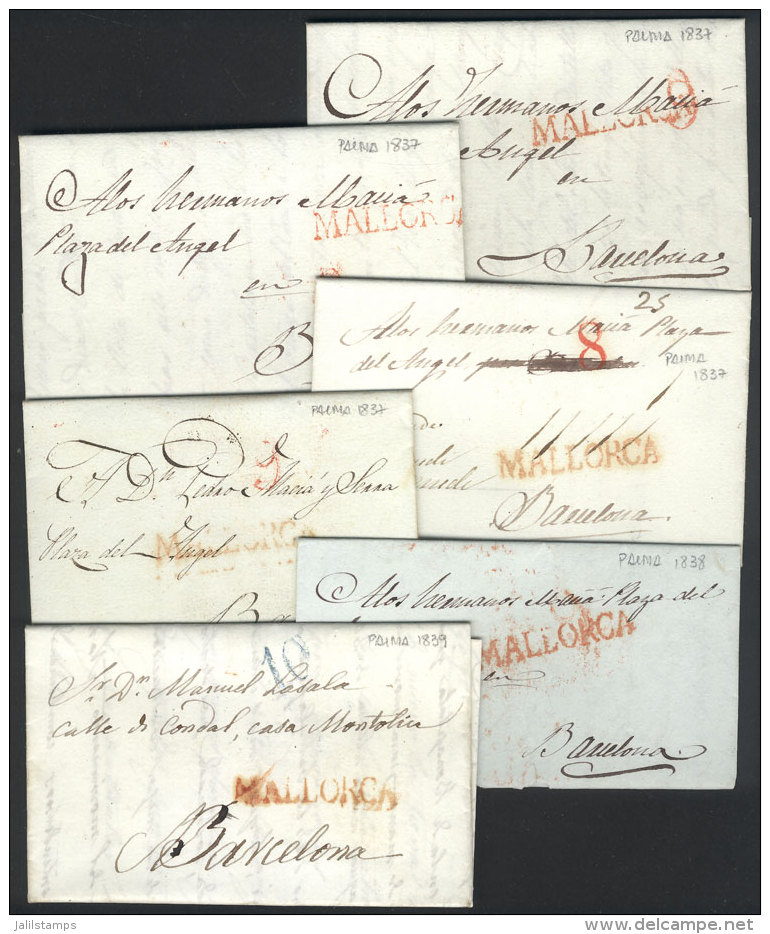 PALMA 1837
A los hermanos Maciá
MALLORCA
8
Angel
en
Barcelona
PALMA 1837
A los hermanos Maciá
MALLORCA
Plaza del Angel
en
B
25
A los hermanos Maciá Plaza
8
del Angel
PALMA
1837
MALLORCA
Barcelona
PALMA 1837
A Dn. Pedro Maciá y Serra
MALLORCA
Plaza del Angel
Ba
PALMA 1838
A los hermanos Maciá Plaza del
MALLORCA
en
Barcelona
PALMA 1839
10
Sr. Dn. Manuel Lasala
calle de Condal, casa Montoliu
MALLORCA
Barcelona
jalilstamps
delcampe.net